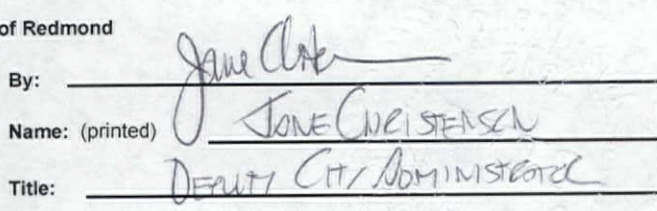 of Redmond
By: Jane Christensen
Name: (printed) JANE CHRISTENSEN
Title: DEPUTY CITY ADMINISTRATOR